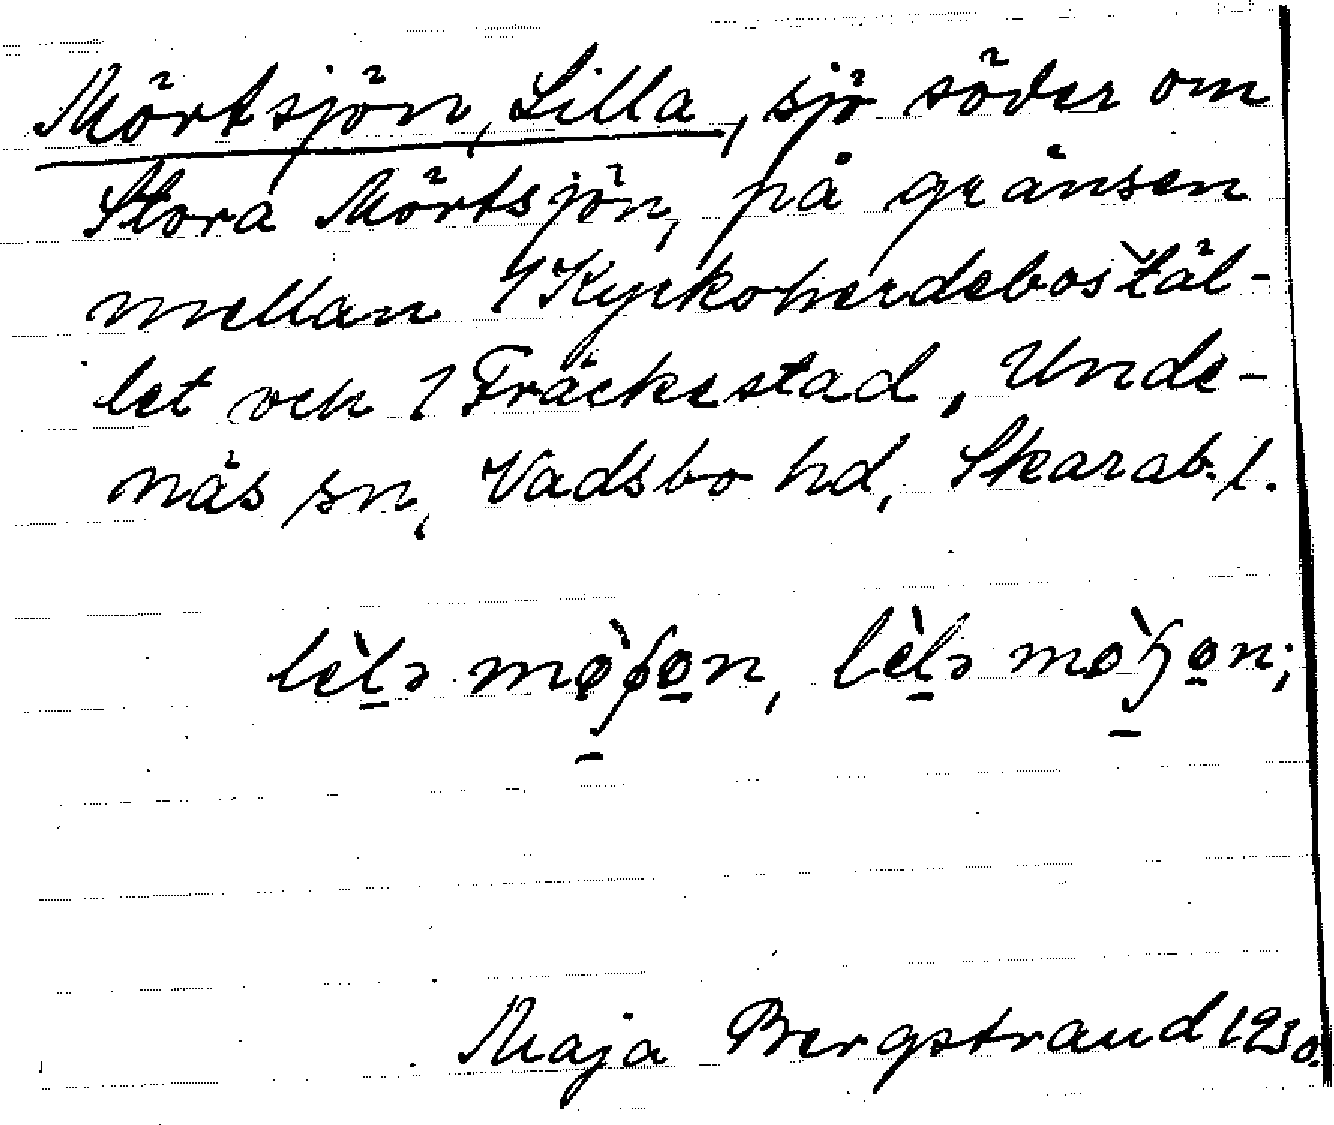 Mörtsjön, Lilla, sjö söder om
Stora Mörtsjön, på gränsen
mellan 1 Kyrkoherdebostäl-
let och 1 Fräckestad, Unde-
näs sn, Vadsbo hd, Skarab. l.
Maja Bergstrand 1930.